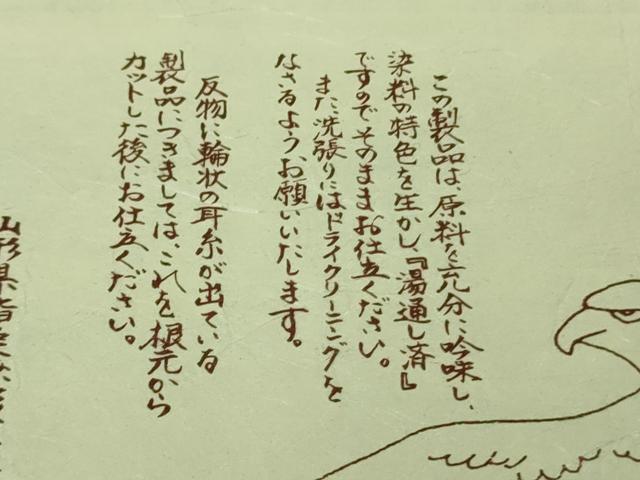 この製品は、原料を充分に吟味し、
染料の特色を生かし、『湯通し済』
ですのでそのままお仕立ください。
また洗張りにはドライクリーニングを
なさるよう、お願いいたします。
反物に輪状の耳糸が出ている
製品につきましては、これを根元から
カットした後にお仕立ください。
山形県